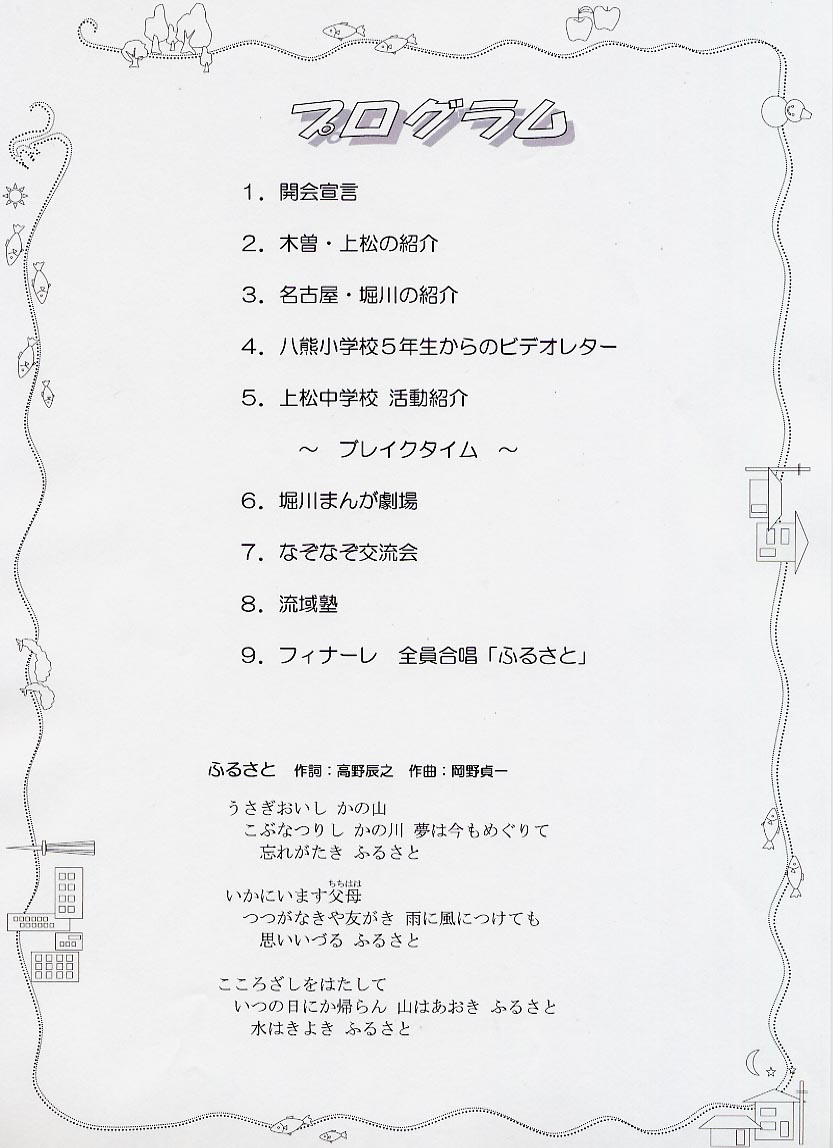 プログラム
１．開会宣言
２．木曽・上松の紹介
３．名古屋・堀川の紹介
４．八熊小学校５年生からのビデオレター
５．上松中学校 活動紹介
～　ブレイクタイム　～
６．堀川まんが劇場
７．なぞなぞ交流会
８．流域塾
９．フィナーレ　全員合唱「ふるさと」
ふるさと　作詞：高野辰之　作曲：岡野貞一
うさぎおいし かの山
こぶなつりし かの川 夢は今もめぐりて
忘れがたき ふるさと
ちちはは
いかにいます父母
つつがなきや友がき 雨に風につけても
思いいづる ふるさと
こころざしをはたして
いつの日にか帰らん 山はあおき ふるさと
水はきよき ふるさと